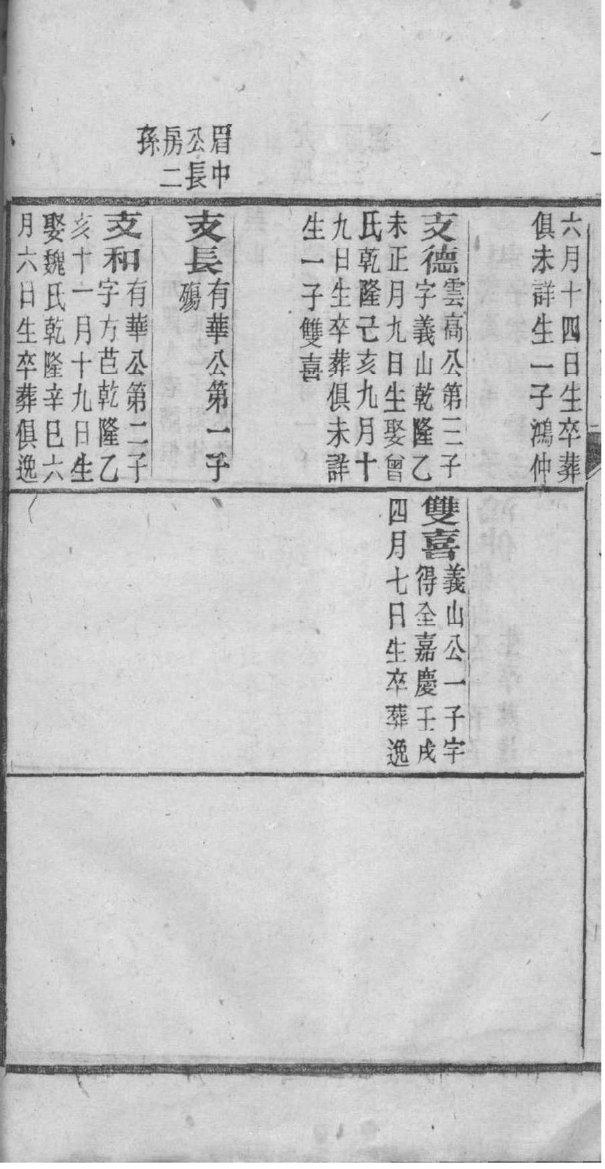 眉中
公長
房二
孫
六月十四日生卒葬
俱未詳生一子鴻仲
支德
雲高公第三子
字義山乾隆乙
未正月九日生娶曾
氏乾隆己亥九月十
九日生卒葬俱未詳
生一子雙喜
支長
有華公第一子
殤
支和
有華公第二子
字方芭乾隆乙
亥十一月十九日生
娶魏氏乾隆辛巳六
月六日生卒葬俱逸
雙喜
義山公一子字
得全嘉慶壬戌
四月七日生卒葬逸